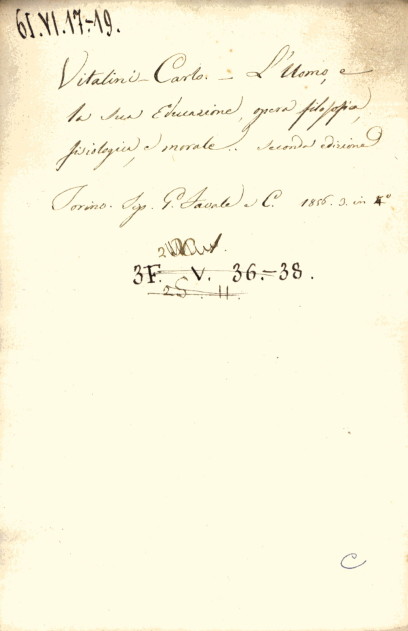 61.VI.17-19.
Vitalini Carlo. – L'Uomo, e
la sua Educazione, opera filosofia,
fisiologica, e morale.. seconda edizione
Torino. Tip. G. Favale e C. 1856. 3. in 4°
3F. V. 36.-38.
25. 11.
C